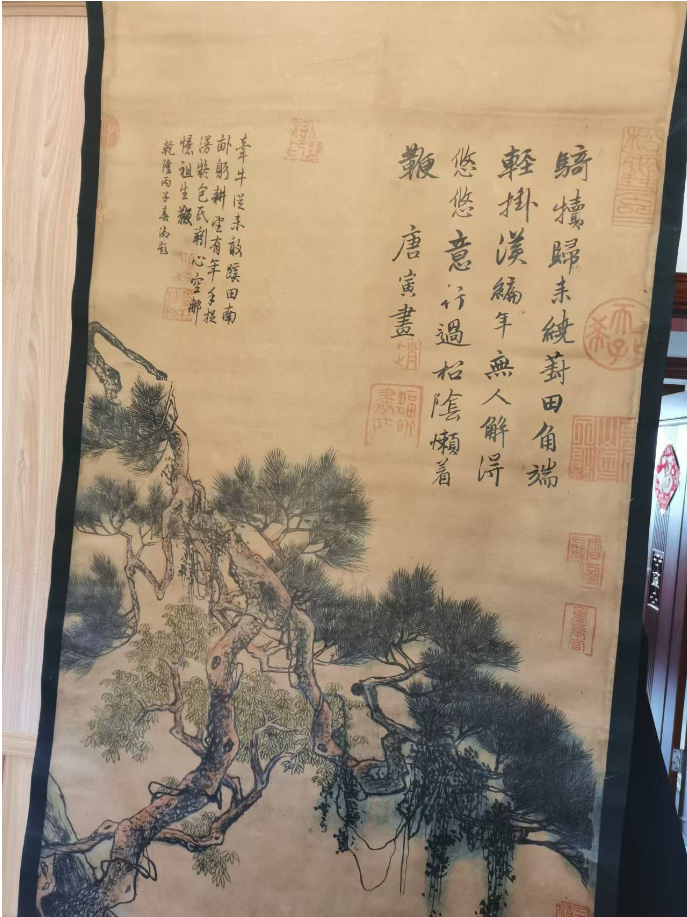 騎犢歸来繞葑田角端
輕掛漢編年無人解得
悠悠意行過松陰懶着
鞭 唐寅畫
牽牛從未敢蹊田南
畝躬耕望有年手捉
包氏心空那
憶祖生鞭
乾隆丙子春御題